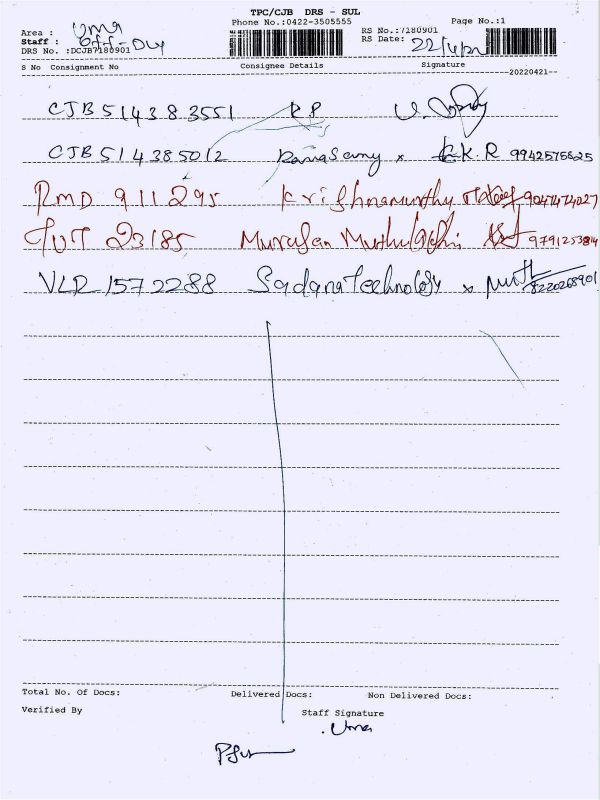 TPC/CJB DRS - SUL
Phone No.:0422-3505555 Page No.:1
Area : Uma
Staff : Off-Duty
DRS No. :DCJB7180901
RS No.:7180901
RS Date: 22/4/22
S No Consignment No Consignee Details Signature
--20220421--
CJB 514383551 K P
CJB 514385012 Ramasamy x K. R 9942575625
RMD 911295 Krishnamurthy 9047474027
TUT 23185 Murugan Muthulakshmi
VLR 1572288 Sadana Technology x 8220268901
Total No. Of Docs: Delivered Docs: Non Delivered Docs:
Verified By Staff Signature
Uma